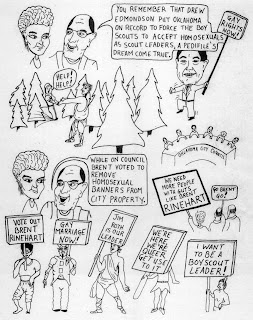 YOU REMEMBER THAT DREW
EDMONDSON PUT OKLAHOMA
ON RECORD TO FORCE THE BOY
SCOUTS TO ACCEPT HOMOSEXUALS
AS SCOUT LEADERS, A PEDIFILE'S
DREAM COME TRUE.
GAY
RIGHTS
NOW!
HELP!
HELP!
OKLAHOMA CITY COUNCIL
WHILE ON COUNCIL
BRENT VOTED TO
REMOVE
HOMOSEXUAL
BANNERS FROM
CITY PROPERTY.
WE NEED
MORE PEOPLE
WITH GUTS
LIKE BRENT
RINEHART
GO BRENT
GO!
VOTE OUT
BRENT
RINEHART
GAY
MARRIAGE
NOW!
JIM
ROTH IS
OUR
LEADER!
WE'RE
HERE
WE'RE
QUEER
GET USE
TO IT
I WANT
TO BE A
BOYSCOUT
LEADER!